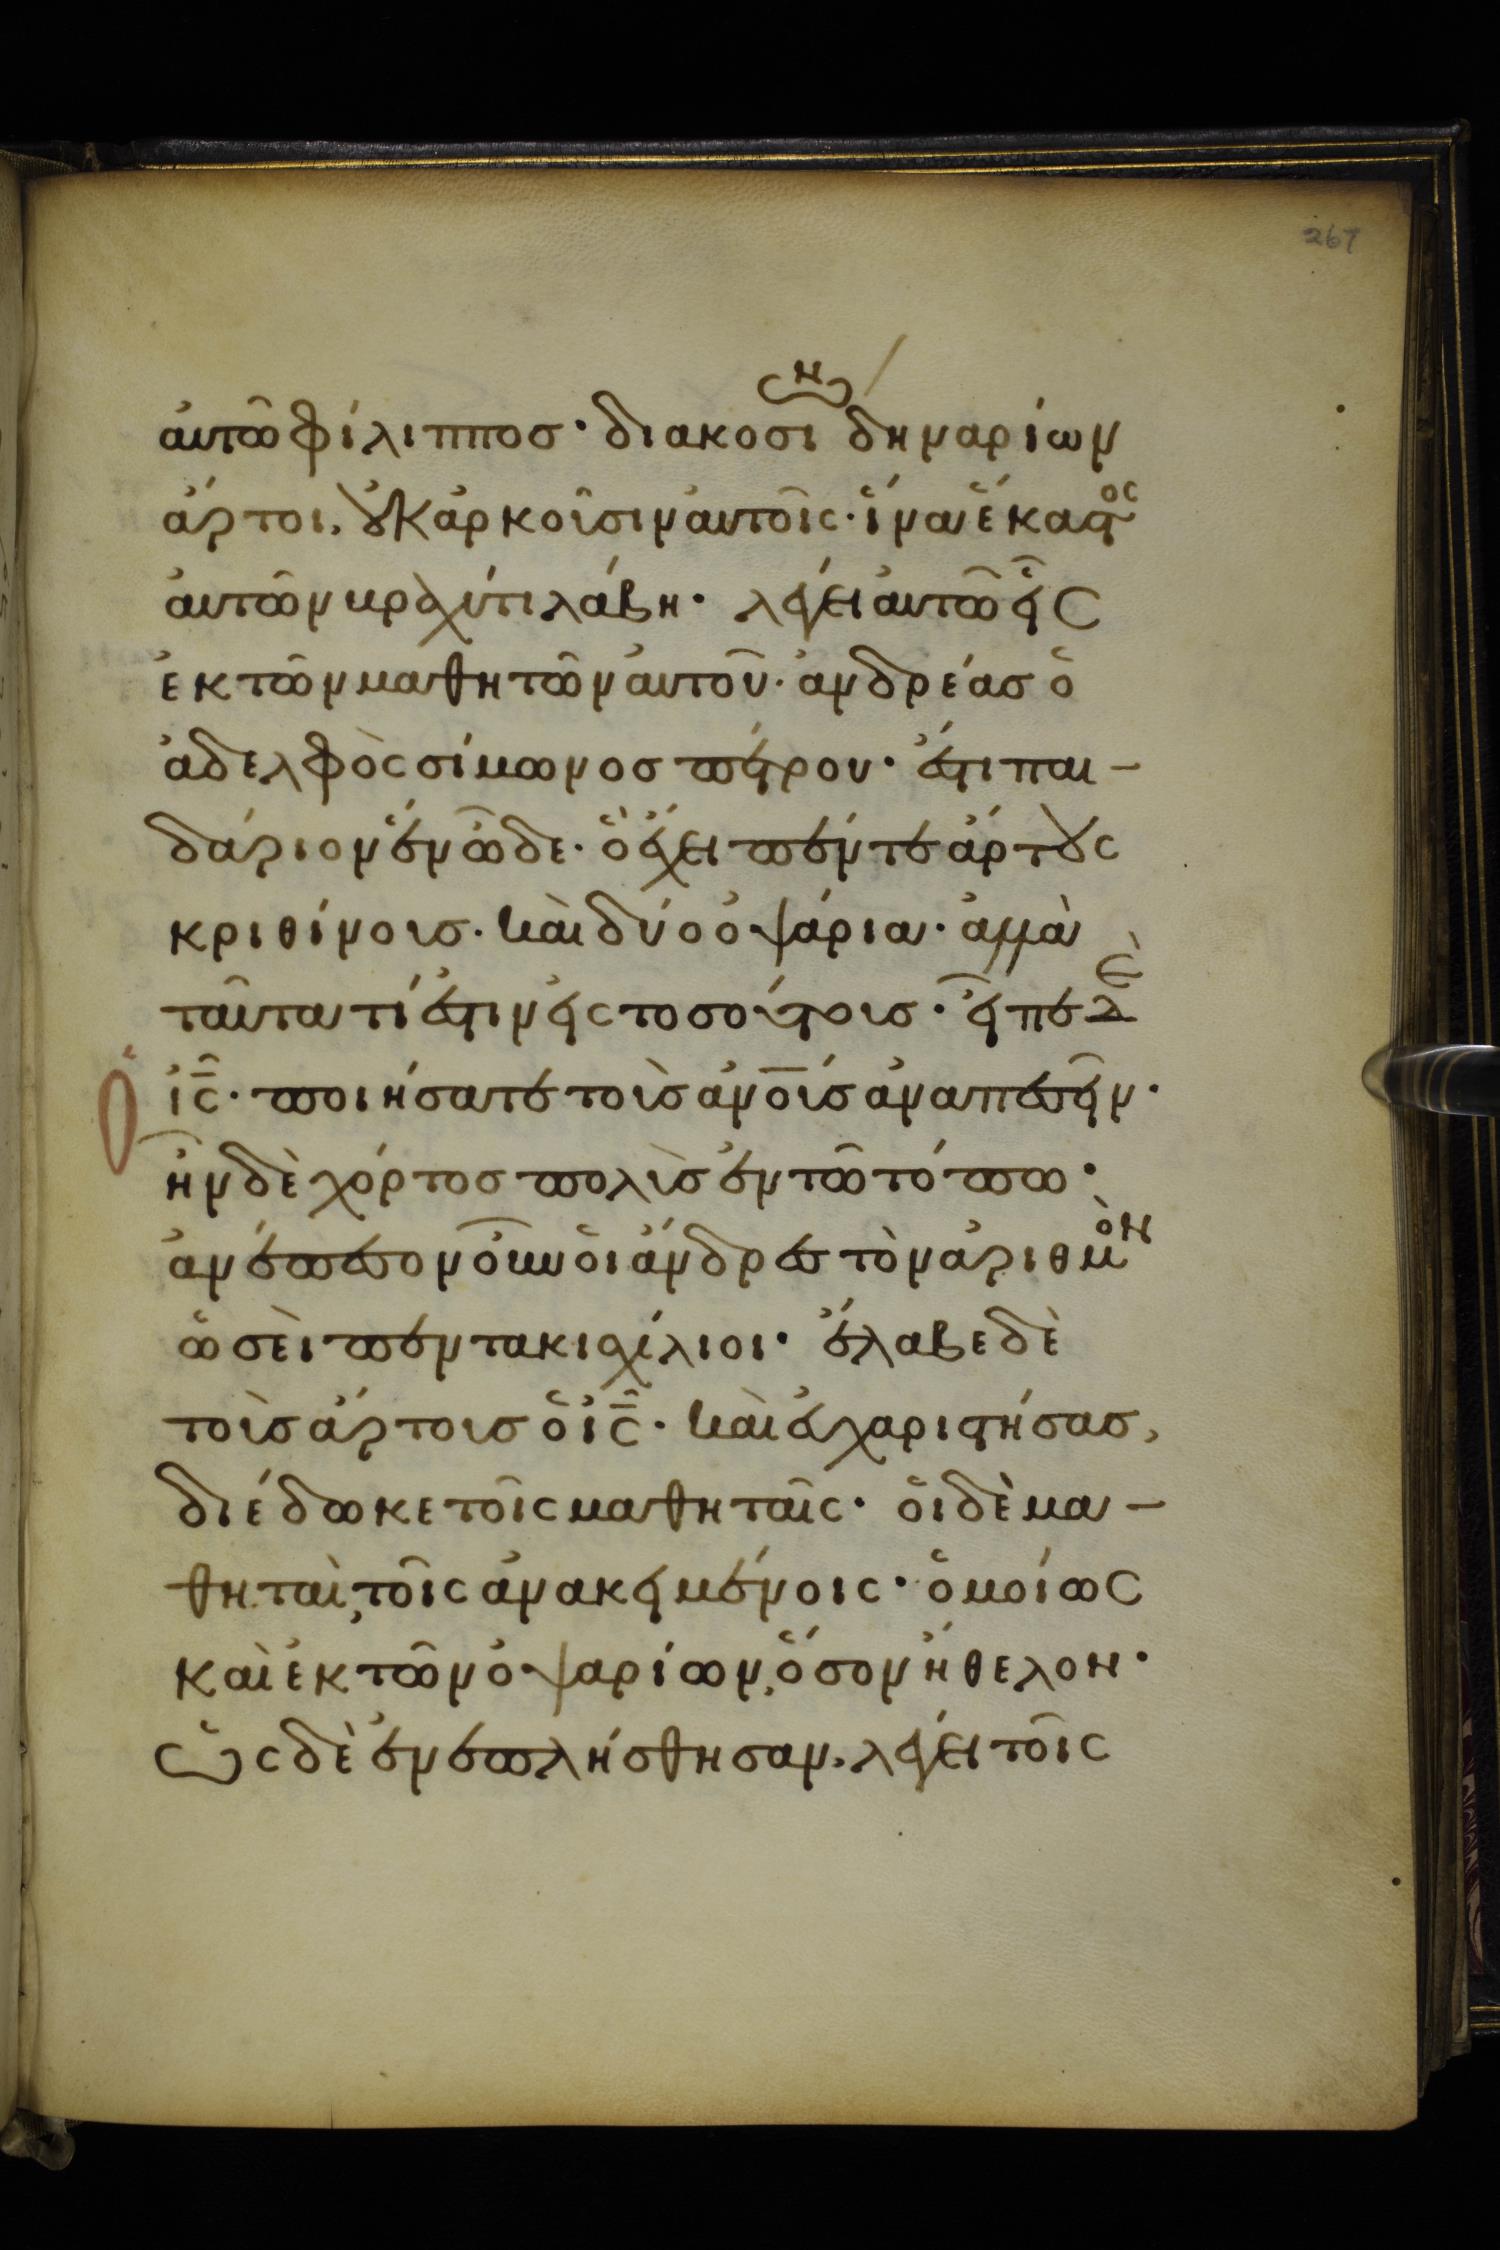 267
αὐτῶ φίλιππος· διακοσίων δηναρίων
ἄρτοι, οὐκ ἀρκοῦσιν αὐτοῖς· ἵνα ἕκαστος
αὐτῶν βραχύ τι λάβη· λέγει αὐτῶ εἷς
ἐκ τῶν μαθητῶν αὐτοῦ· ἀνδρέας ὁ
ἀδελφὸς σίμωνος πέτρου· ἔστι παι-
δάριον ἓν ὧδε· ὃ ἔχει πέντε ἄρτους
κριθίνους· καὶ δύο ὀψάρια· ἀλλὰ
ταῦτα τί ἐστιν εἰς τοσούτους· εἶπε δὲ
ὁ ἰς̄· ποιήσατε τοὺς ἀνο̅υς ἀναπεσεῖν·
ἦν δὲ χόρτος πολὺς ἐν τῶ τόπω·
ἀνέπεσον οὖν οἱ ἄνδρες τὸν ἀριθμὸν
ὡσεὶ πεντακισχίλιοι· ἔλαβε δὲ
τοὺς ἄρτους ὁ ἰς̄· καὶ εὐχαριστήσας,
διέδωκε τοῖς μαθηταῖς· οἱ δὲ μα-
θηταὶ, τοῖς ἀνακειμένοις· ὁμοίως
καὶ ἐκ τῶν ὀψαρίων, ὅσον ἤθελον·
ὡς δὲ ἐνεπλήσθησαν, λέγει τοῖς